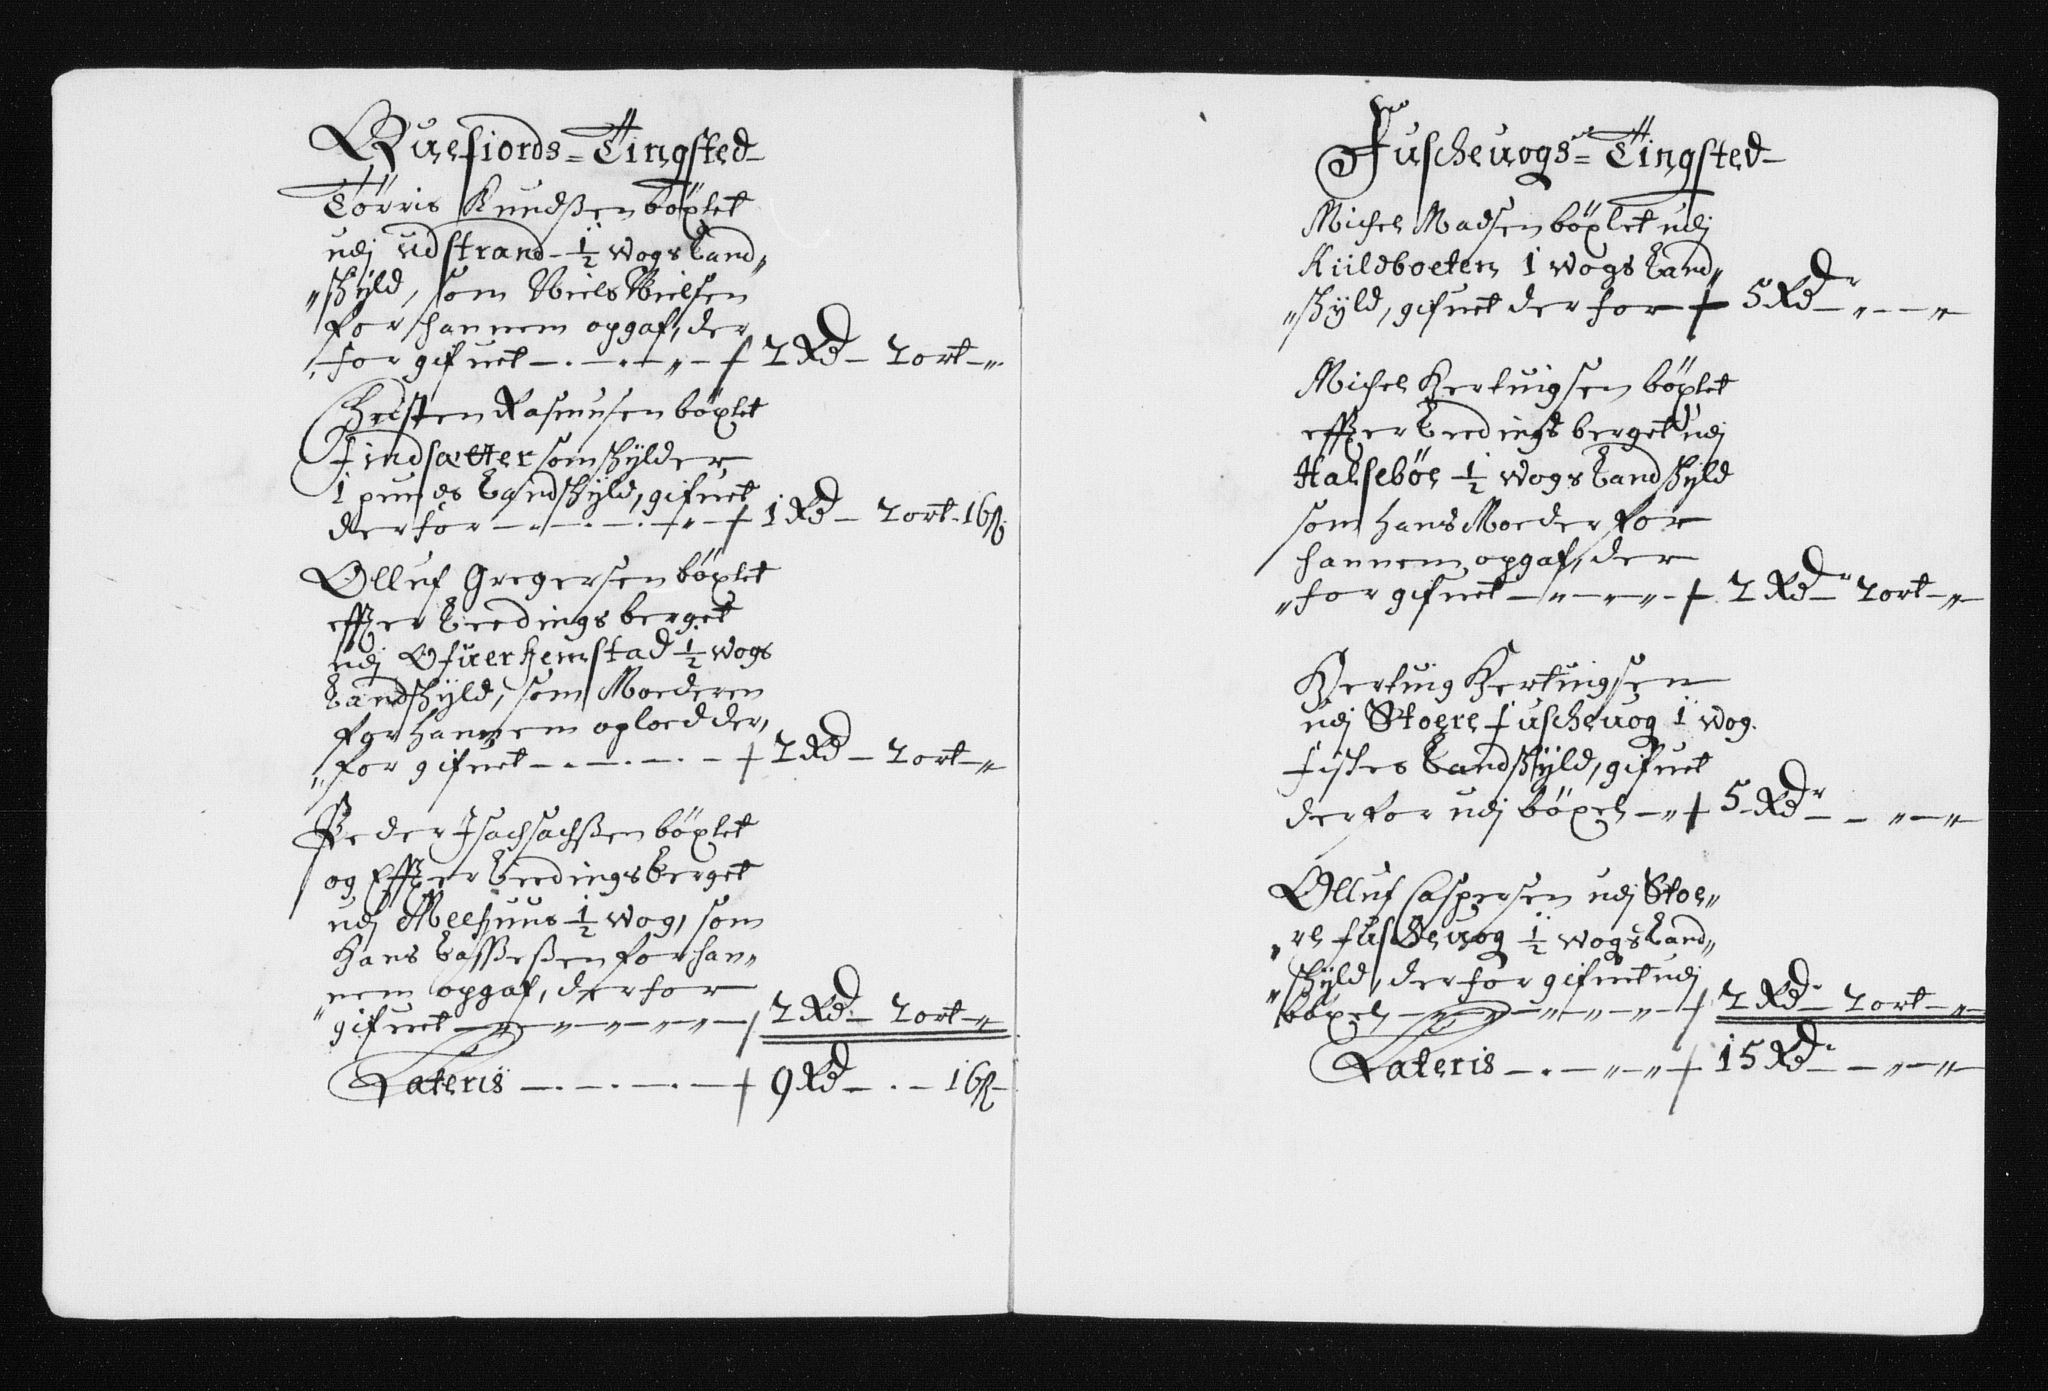 Quefiords = Tingsted
Törris Knudsen böxlet
udj udstrand ½ wogs Land„
„skyld, som Niels Nielsen
for hannem opgaf, der
„for gifuet 2 Rd 2 ort „
Christen Rasmusen böxlet
Findsætter som skylder
1 punds Landskyld, gifuet
der for 1 Rd 2 ort 16 ß
Olluf Gregersen böxlet
effter Leedings berget
udj Ofuerhemstad ½ wogs
Landskyld, som Moederen
for hannem oploed der,
„for gifuet 2 Rd 2 ort „
Peder Isachsachsen böxlet
og Effter Leedings berget
udj Meelhuus ½ wog, som
Hans Lassesen for han„
„nem opgaf, der for
gifuet 2 Rd 2 ort „
Lateris 9 Rd 16 ß
Fuscheuogs = Tingsted
Michel Madsen böxlet udj
Kiildboeten 1 wogs Land„
„skyld, gifuet der for 5 Rdr „ „
Michel Hertuigsen böxlet
effter Leedings berget udj
Halseböe ½ wogs Landskyld
som hans Moeder for
hannem opgaf, der
„for gifuet 2 Rdr 2 ort „
Hertuig Hertuigsen
udj Stoere fuscheuog 1 wog
fiskes Landskyld, gifuet
der for udj böxel 5 Rdr „ „
Olluf Caspersen udj Stoe„
„re fuscheuog ½ wogs Land„
„skyld, der for gifuet udj
böxel 2 Rdr 2 ort „
Lateris 15 Rdr „ „